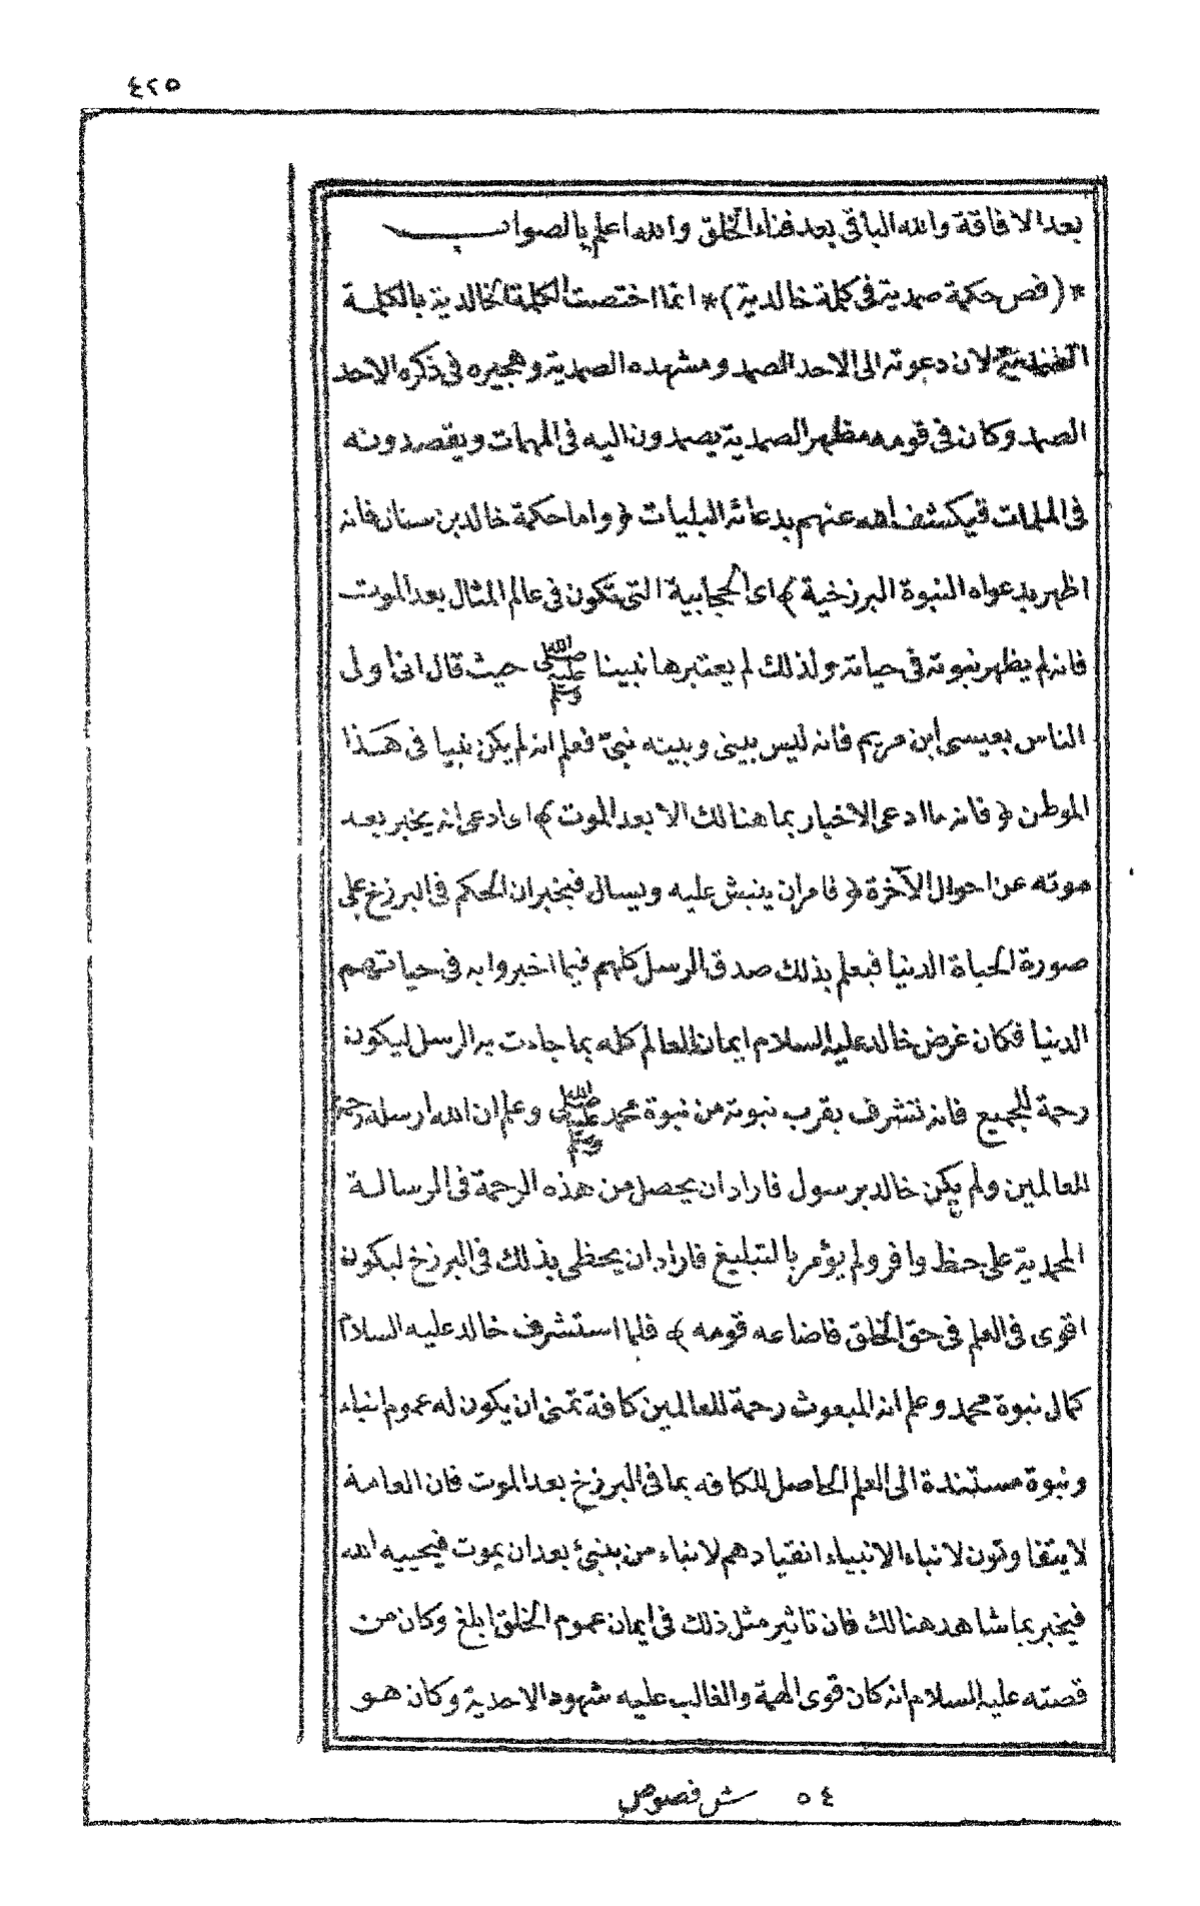 ٤٢٥
بعد الافاقة والله الباقى بعد فناء الخلق والله اعلم بالصواب
*(فص حكمة صمدية فى كلمة خالدية)* انما اختصت الكلمة الخالدية بالكلمة
لان دعوته الى الاحد الصمد ومشهده الصمدية وهجيره فى ذكره الاحد
الصمد وكان فى قومه مظهر الصمدية يصمدون اليه فى المهمات ويقصدونه
فى الملمات فيكشف الله عنهم بدعائه البليات ﴿ واما حكمة خالد بن سنان فانه
اظهر بدعواه النبوة البرزخية ﴾ اى الحجابية التى تكون فى عالم المثال بعد الموت
فانه لم يظهر نبوته فى حياته ولذلك لم يعتبرها نبينا صلى الله عليه وسلم حيث قال انى اولى
الناس بعيسى ابن مريم فانه ليس بينى وبينه نبى فعلم انه لم يكن نبيا فى هذا
الموطن ﴿ فانه ما ادعى الاخبار بما هنالك الا بعد الموت ﴾ اى ادعى انه يخبر بعد
موته عن احوال الآخرة ﴿ فامر ان ينبش عليه ويسال فيخبر ان الحكم فى البرزخ على
صورة الحياة الدنيا فيعلم بذلك صدق الرسل كلهم فيما اخبروا به فى حياتهم
الدنيا فكان غرض خالد عليه السلام ايمان العالم كله بما جاءت به الرسل ليكون
رحمة للجميع فانه تشرف بقرب نبوته من نبوة محمد صلى الله عليه وسلم وعلم ان الله ارسله رحمة
للعالمين ولم يكن خالد برسول فاراد ان يحصل من هذه الرحمة فى الرسالة
المحمدية على حظ وافر ولم يؤمر بالتبليغ فاراد ان يحظى بذلك فى البرزخ ليكون
اقوى فى العلم فى حق الخلق فاضاعه قومه ﴾ فلما استشرف خالد عليه السلام
كمال نبوة محمد وعلم انه المبعوث رحمة للعالمين كافة تمنى ان يكون له عموم انباء
ونبوة مستندة الى العلم الحاصل للكافه بما فى البرزخ بعد الموت فان العامة
لا يتفاوتون لانباء الانبياء انقيادهم لانباء من ينبئ بعد ان يموت فيحييه الله
فيخبر بما شاهد هنالك فان تاثير مثل ذلك فى ايمان عموم الخلق ابلغ وكان من
قصته عليه السلام انه كان قوى الهمة والغالب عليه شهود الاحدية وكان هو
٥٤ ش فصوص